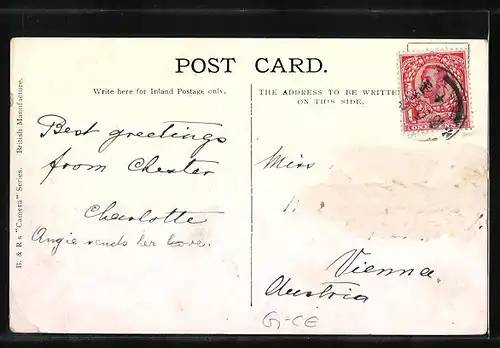 POST CARD.
Write here for Inland Postage only.
THE ADDRESS TO BE WRITTEN
ON THIS SIDE.
Best greetings
from Chester
Charlotte
Angie sends her love.
Miss
Vienna
Austria
G-CE
B. & R's "Camera" Series. British Manufacture.